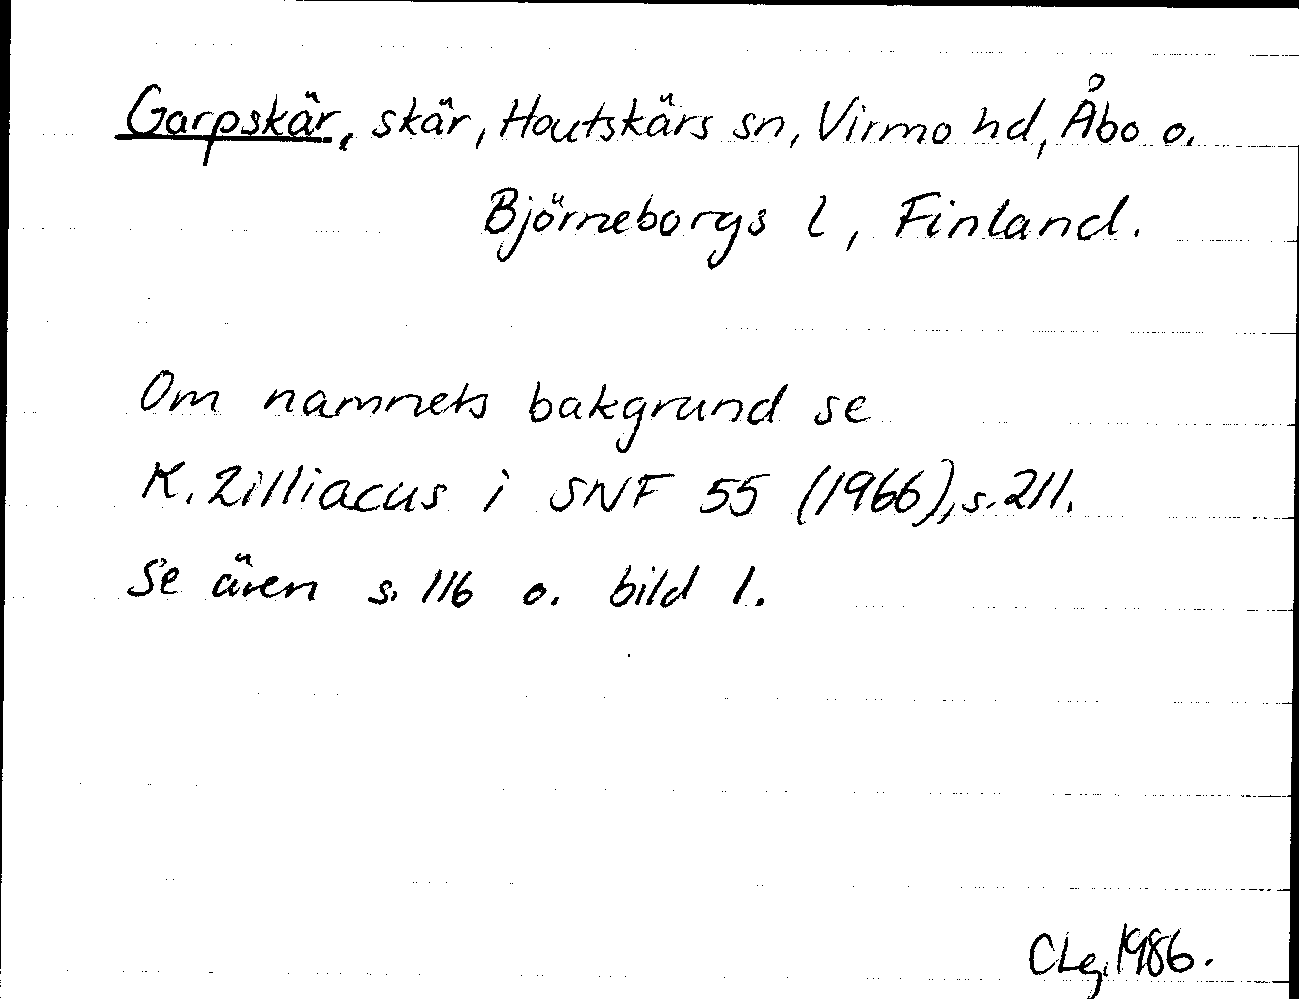 Garpskär, skär, Houtskärs sn, Virmo hd, Åbo o.
Björneborgs l, Finland.
Om namnets bakgrund se
K. Zilliacus i SNF 55 (1966), s. 211.
Se även s. 116 o. bild 1.
CLg, 1986.